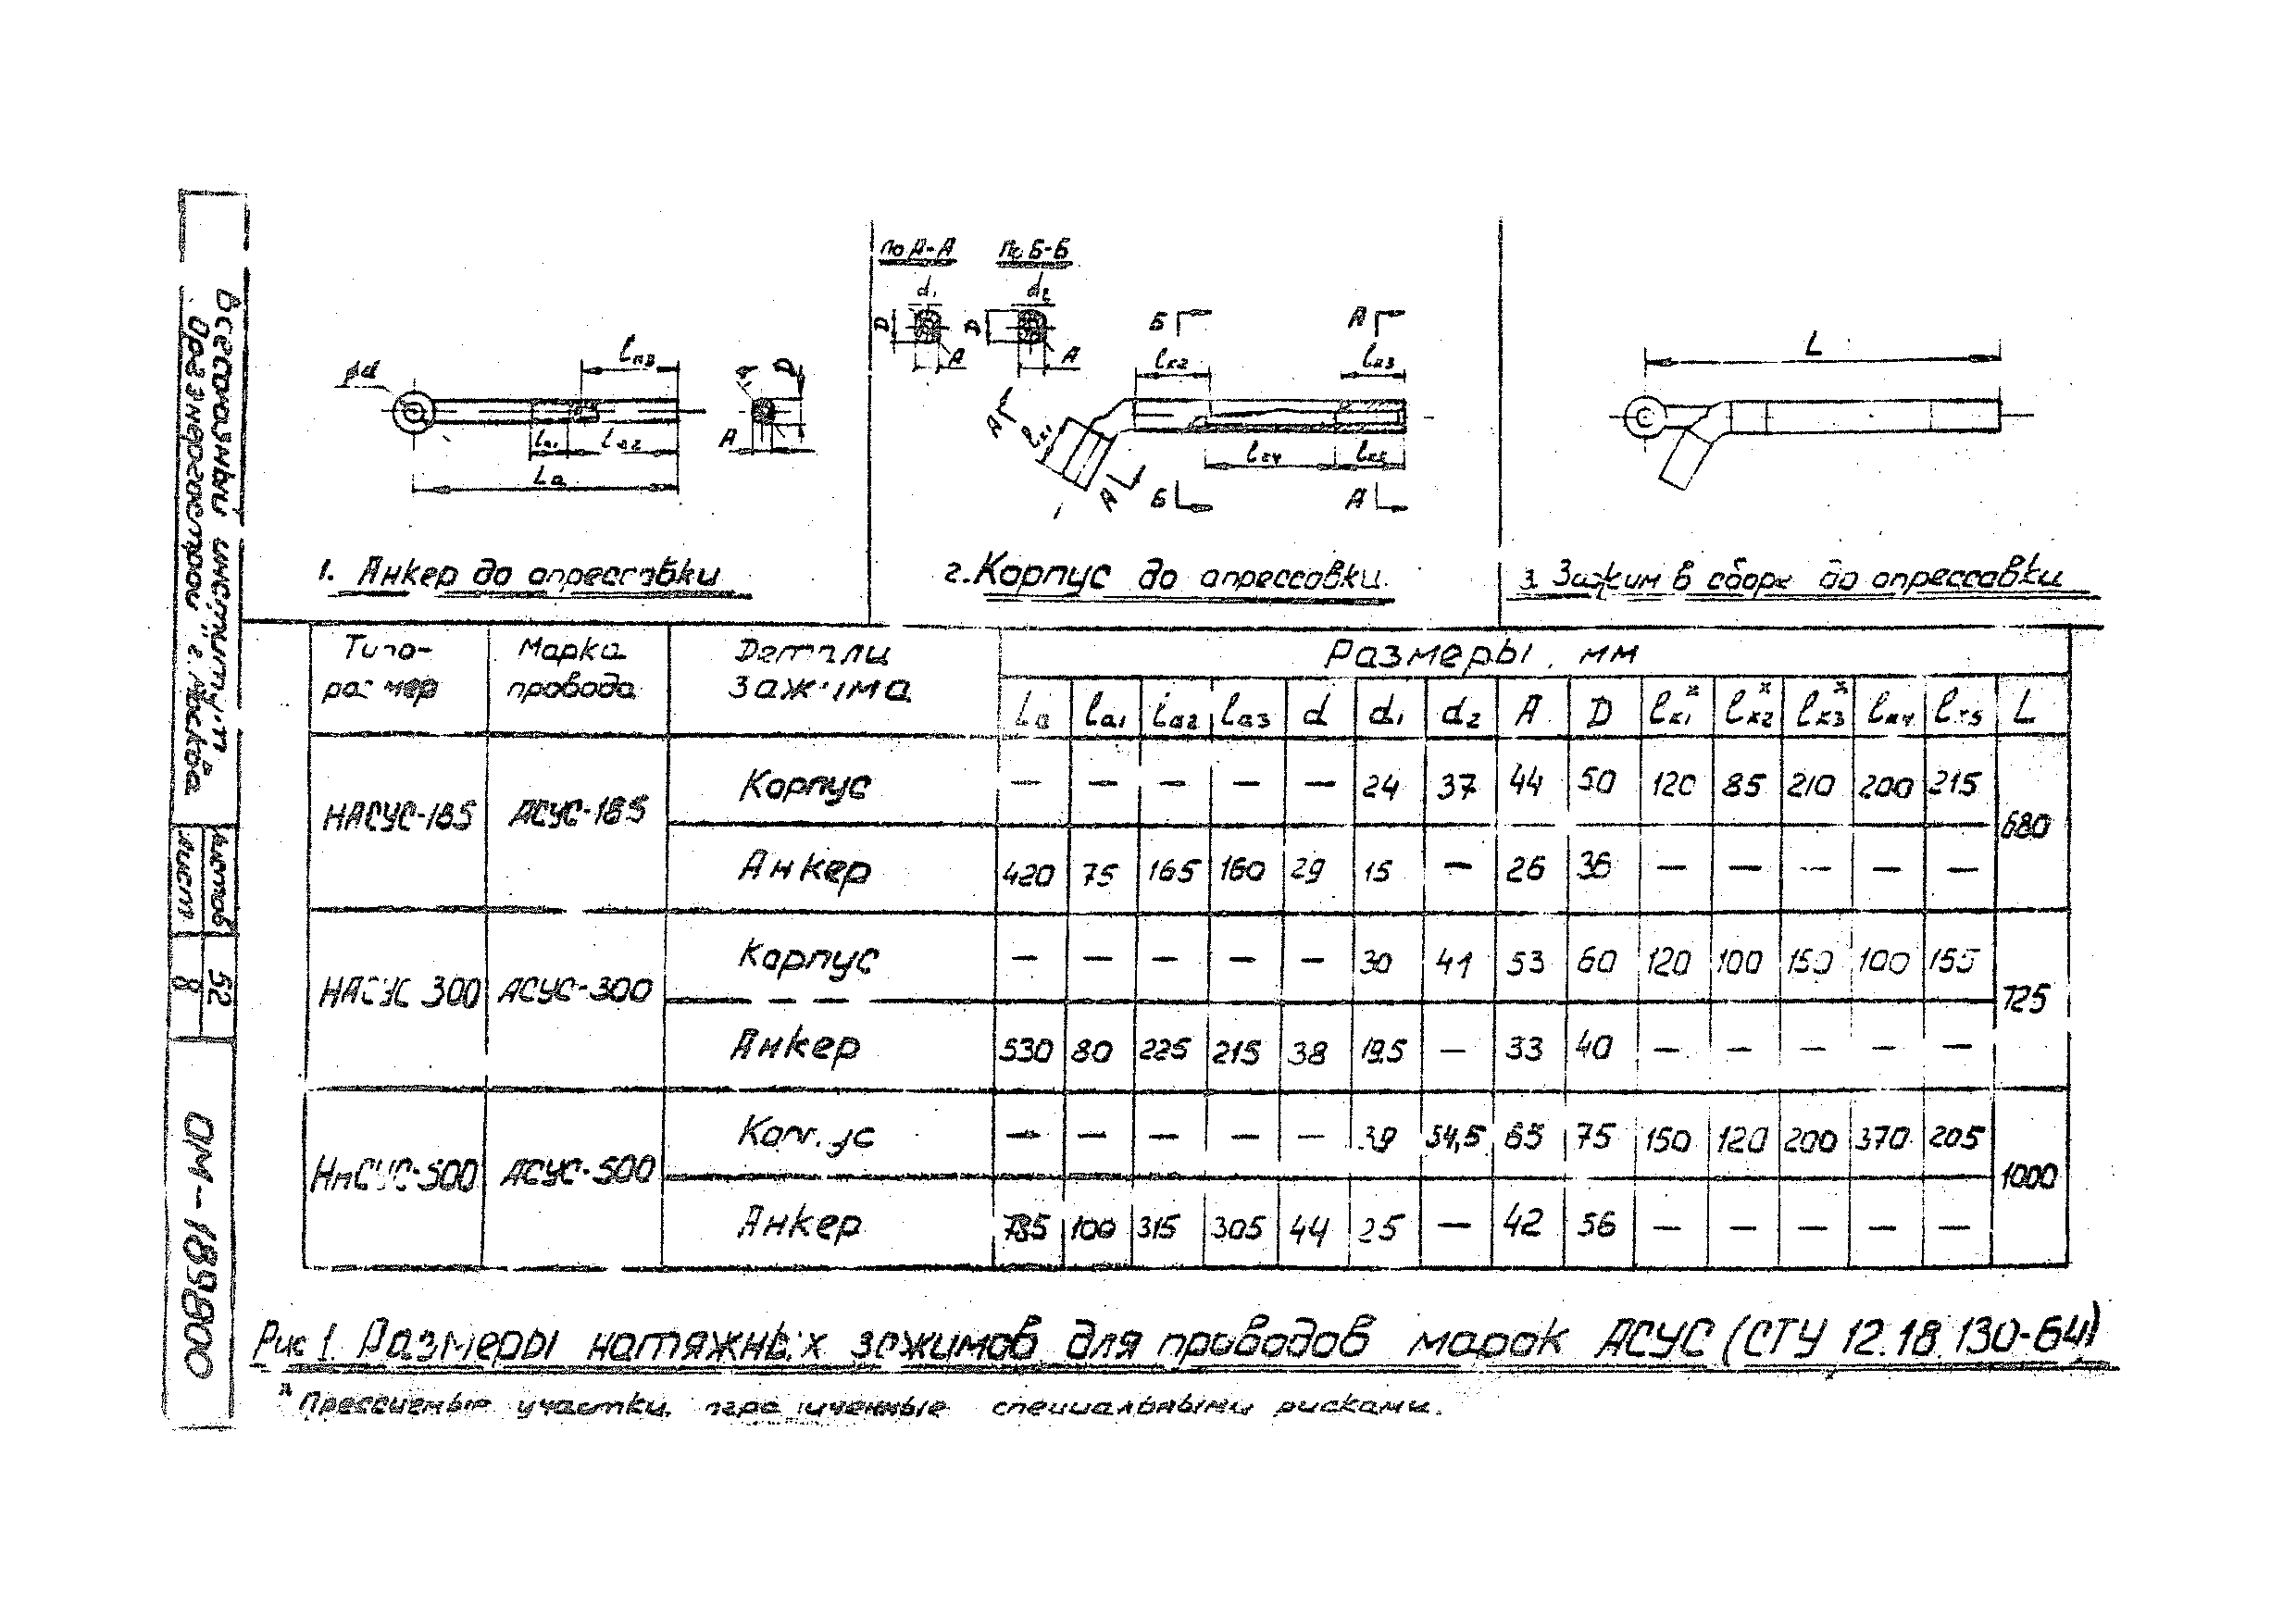 Всесоюзный институт
"Оргэнергострой" г. Москва
Листов 52
Лист 8
ОМ-189800
по А-А
По Б-Б
d₁
d₂
D
D
А
А
Б
А
lк2
lк3
А
lк1
lк4
lк5
А
Б
А
ød
lа3
lа1
lа2
Lа
d₁
D
А
L
1. Анкер до опрессовки
2. Корпус до опрессовки.
3. Зажим в сборе до опрессовки
Типо-размер | Марка провода | Детали зажима | Размеры, мм
Lа | lа1 | lа2 | lа3 | d | d₁ | d₂ | А | D | lк1ˣ | lк2ˣ | lк3ˣ | lк4 | lк5 | L
НАСУС-185 | АСУС-185 | Корпус | — | — | — | — | — | 24 | 37 | 44 | 50 | 120 | 85 | 210 | 200 | 215 | 680
Анкер | 420 | 75 | 165 | 160 | 29 | 15 | — | 26 | 36 | — | — | — | — | —
НАСУС 300 | АСУС-300 | Корпус | — | — | — | — | — | 30 | 41 | 53 | 60 | 120 | 100 | 150 | 100 | 155 | 725
Анкер | 530 | 80 | 225 | 215 | 38 | 19,5 | — | 33 | 40 | — | — | — | — | —
НАСУС-500 | АСУС-500 | Корпус | — | — | — | — | — | 39 | 54,5 | 65 | 75 | 150 | 120 | 200 | 370 | 205 | 1000
Анкер | 785 | 100 | 315 | 305 | 44 | 25 | — | 42 | 56 | — | — | — | — | —
Рис 1. Размеры натяжных зажимов для проводов марок АСУС (СТУ 12.18.130-64)
ˣ Прессуемые участки, ограниченные специальными рисками.